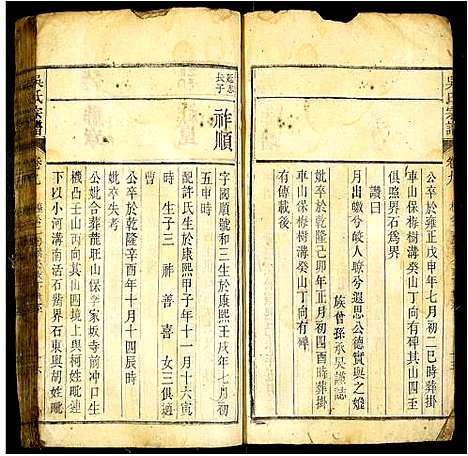 吳氏宗譜
卷九
公卒於雍正戊申年七月初二巳時葬掛
車山保梅樹溝癸山丁向有碑其山四王
俱鑿界石爲界
讚曰
月出皦兮皎人瞭兮遐思公德實與之
族曾孫承昊謹誌
妣卒於乾隆己卯年正月初四酉時葬掛
車山保梅樹溝癸山丁向有碑
有傳載後
長子
祥順
字國順號和三生於康熙壬戌年七月初
五申時
配許氏生於康熙甲子年十一月十六寅
時 生子三 祌 善 喜 女三俱適
曹
公卒於乾隆辛酉年十月十四日時
妣卒失考
公妣合葬龍旺山保李家坂寺前冲口生
機凸壬山丙向其山境上與柯姓毗連
下以小河溝南活石嘴界石東與胡姓毗
吳氏宗譜
卷九